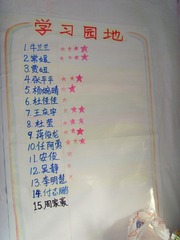 学习园地
1.牛兰兰
2.常媛
3.黄妞
4.张平平
5.杨婉晴
6.杜佳佳
7.王宾宇
8.杜莹
9.蒋俊龙
10.任阿勇
11.安俊
12.吴静
13.李明慧
14.付志鹏
15.周家豪